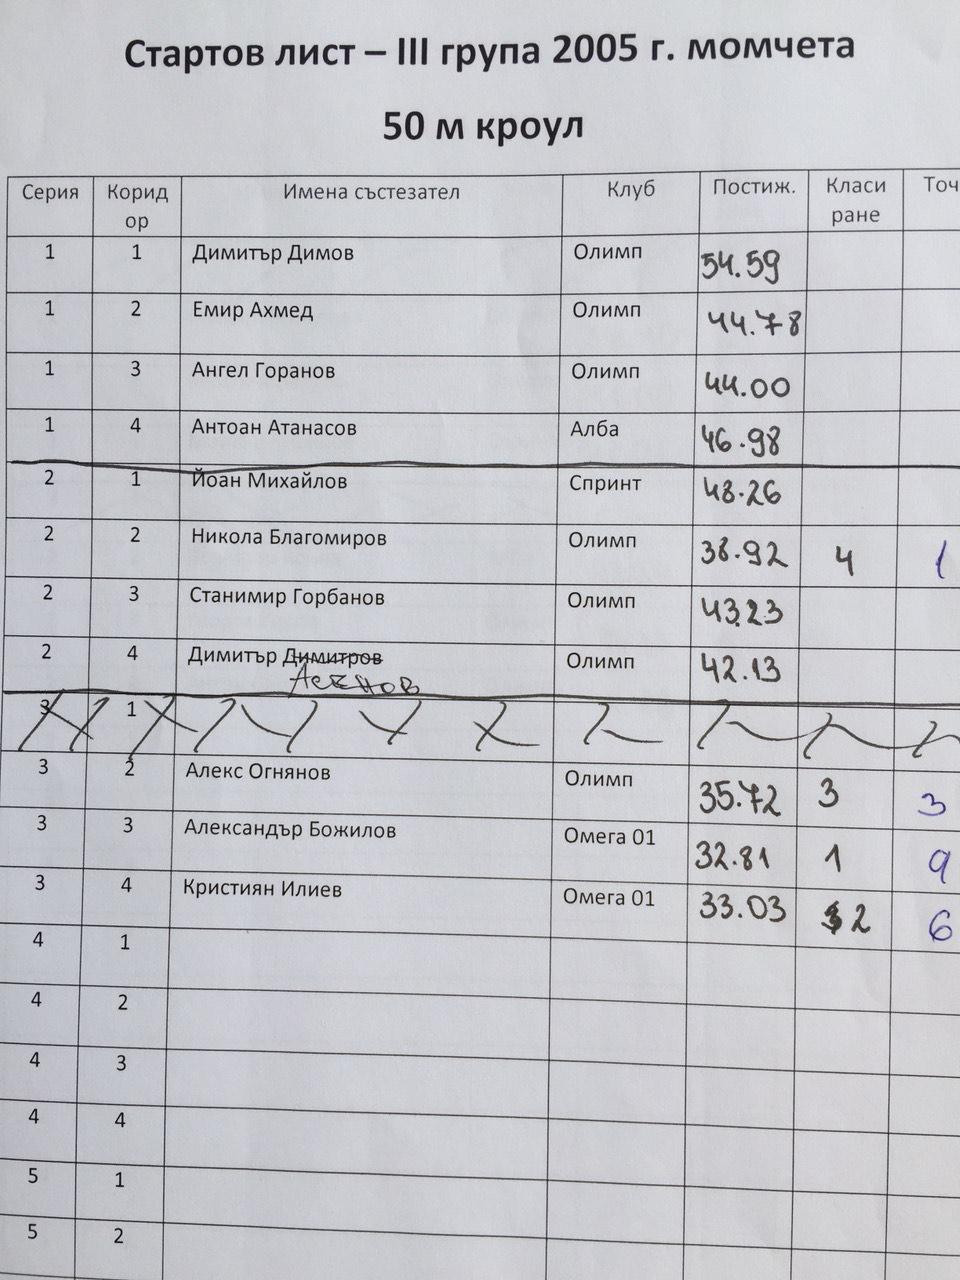 Стартов лист – III група 2005 г. момчета
50 м кроул
Серия Корид ор Имена състезател Клуб Постиж. Класи ране Точ
1 1 Димитър Димов Олимп 54.59
1 2 Емир Ахмед Олимп 44.78
1 3 Ангел Горанов Олимп 44.00
1 4 Антоан Атанасов Алба 46.98
2 1 Йоан Михайлов Спринт 48.26
2 2 Никола Благомиров Олимп 38.92 4 1
2 3 Станимир Горбанов Олимп 43.23
2 4 Димитър Димитров Олимп 42.13
Асенов
3 1
3 2 Алекс Огнянов Олимп 35.72 3 3
3 3 Александър Божилов Омега 01 32.81 1 9
3 4 Кристиян Илиев Омега 01 33.03 2 6
4 1
4 2
4 3
4 4
5 1
5 2